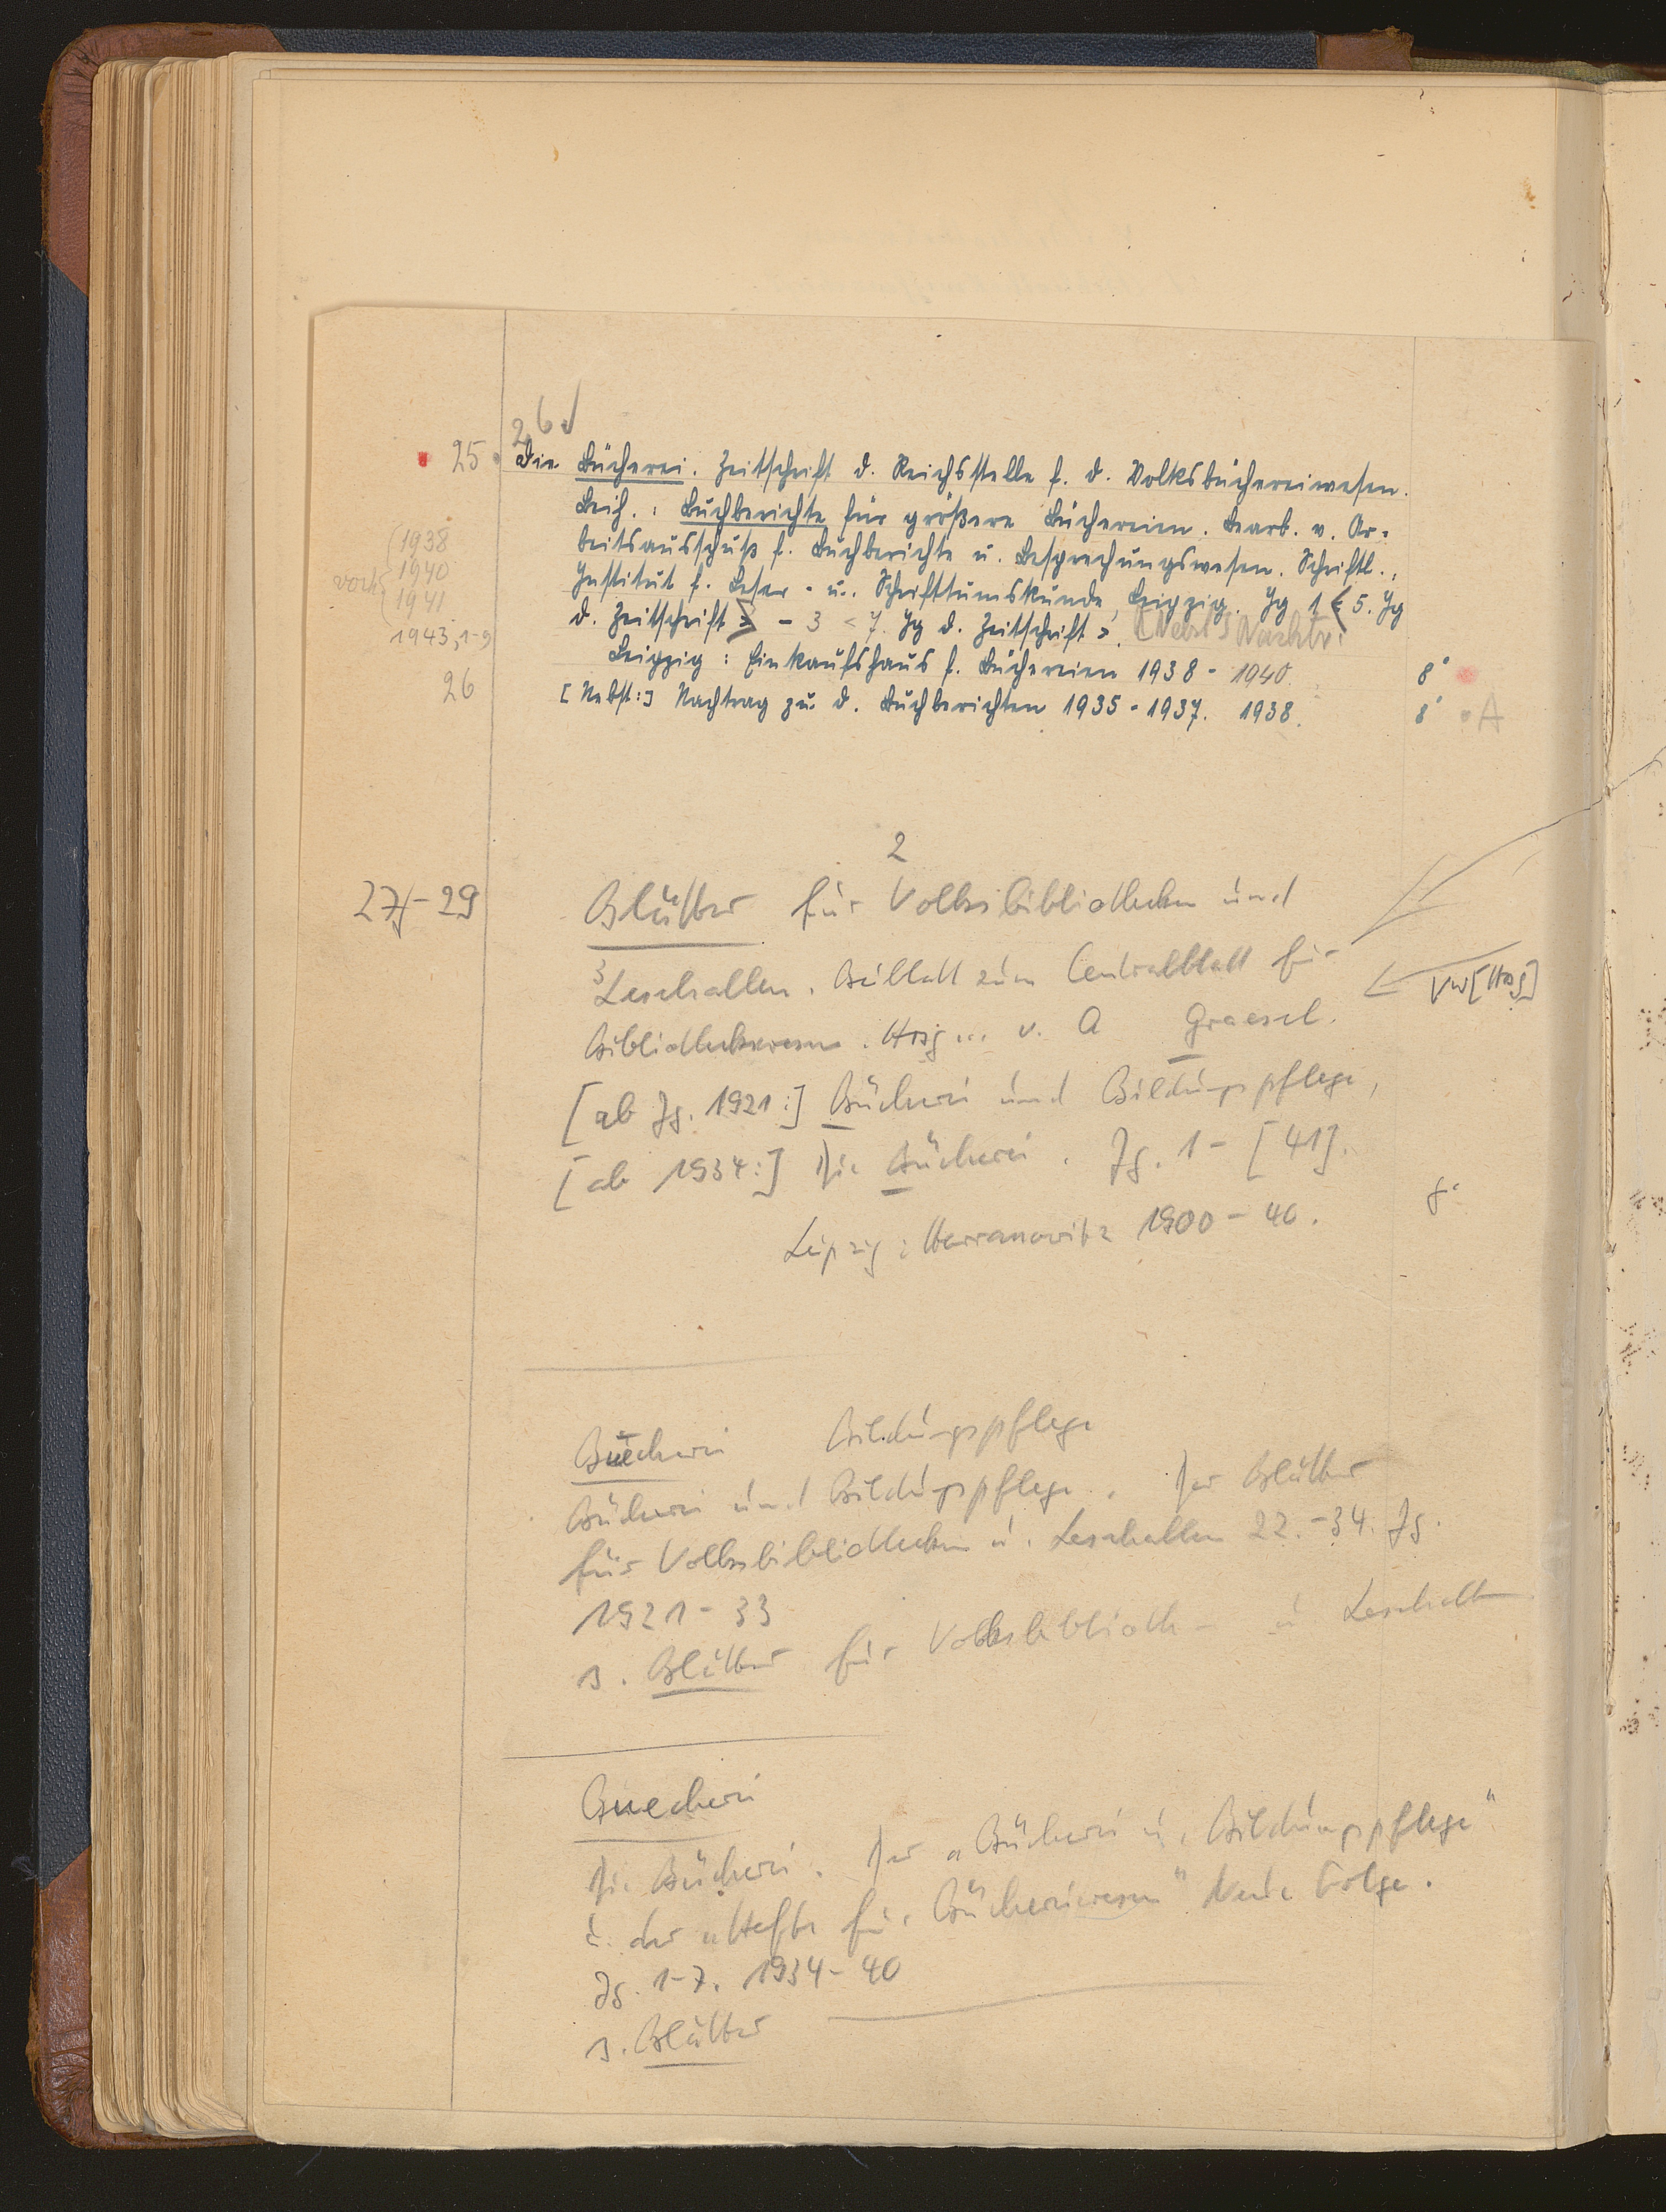 26
25. Die Bücherei. Zeitschrift d. Reichsstelle f. d. Volksbüchereiwesen.
Beih.: Buchberichte für größere Büchereien. Bearb. v. Ar-
beitsausschuß f. Buchberichte u. Besprechungswesen. Schriftl.:
Institut f. Leser- u. Schrifttumskunde, Leipzig. Jg 1 < 5. Jg
d. Zeitschrift > - 3 < 7. Jg d. Zeitschrift >. [Nebst] Nachtr.
Leipzig: Einkaufshaus f. Büchereien 1938 - 1940. 8°
[Nebst:] Nachtrag zu d. Buchberichten 1935-1937. 1938. 8° A
vorh.
1938
1940
1941
1943, 1-9
26
2
27-29 Blätter für Volksbibliotheken und
3 Lesehallen. Beiblatt zum Centralblatt für
Vw [Hrsg]
Bibliothekswesen. Hrsg... v. A Graesel.
[ab Jg. 1921:] Bücherei und Bildungspflege,
[ab 1934:] Die Bücherei. Jg. 1 - [41].
8°
Leipzig: Harrassowitz 1900-40.
Buecherei Bildungspflege
Bücherei und Bildungspflege. Der Blätter
für Volksbibliotheken u. Lesehallen 22.-34. Jg.
1921-33
s. Blätter für Volksbiblioth- u Lesehall
Buecherei
Die Bücherei. Der "Bücherei u. Bildungspflege"
u. der "Hefte für Büchereiwesen" Neue Folge.
Jg. 1-7. 1934-40
s. Blätter